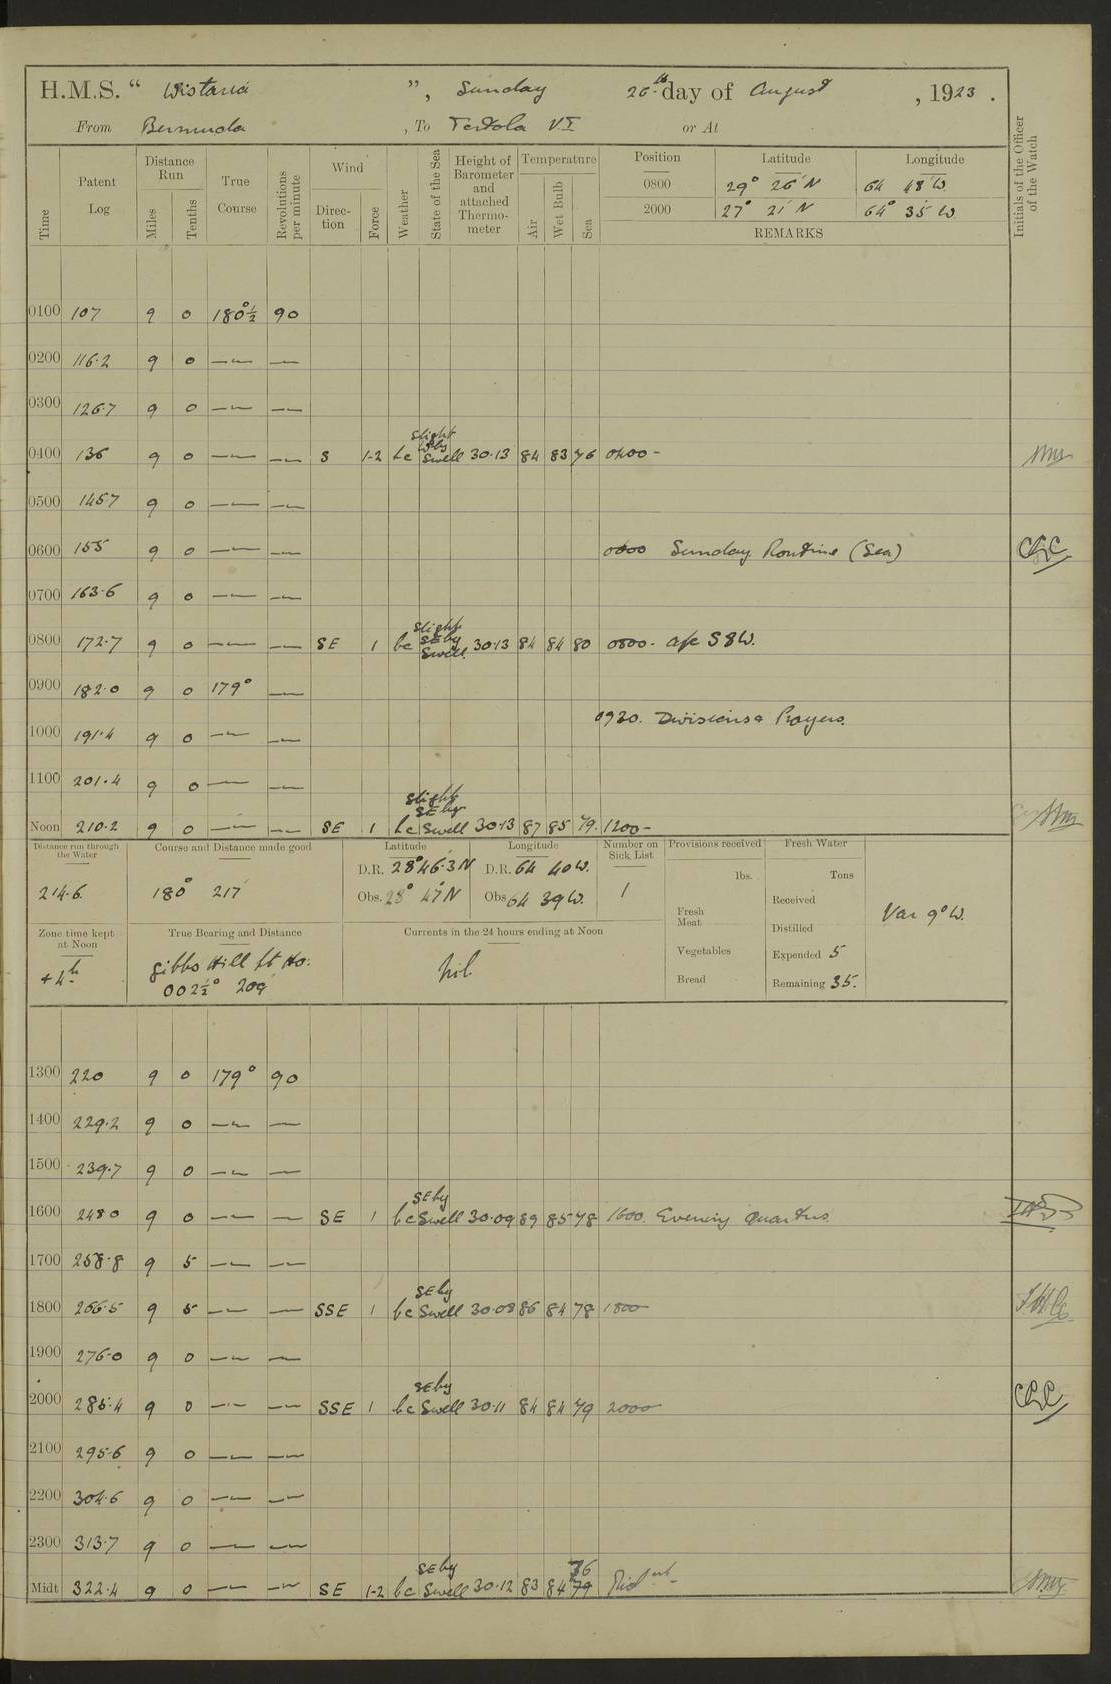 H.M.S. “ Wistaria ”, Sunday 26th day of August , 1923 .
From Bermuda , To Tortola V I or At
Time Patent Log Distance Run Miles Tenths True Course Revolutions per minute Wind Direction Force Weather State of the Sea Height of Barometer and attached Thermometer Temperature Air Wet Bulb Sea Position Latitude Longitude Initials of the Officer of the Watch
0800 29° 26' N 64 48' W.
2000 27° 21' N 64° 35' W
REMARKS
0100 107 9 0 180°½ 90
0200 116.2 9 0 —〃— —〃—
0300 126.7 9 0 —〃— —〃—
0400 136 9 0 —〃— —〃— S 1-2 bc Slight Swell 30.13 84 83 76 0400 -
0500 145.7 9 0 —〃— —〃—
0600 155 9 0 —〃— —〃— 0600 Sunday Routine (Sea)
0700 163.6 9 0 —〃— —〃—
0800 172.7 9 0 —〃— —〃— SE 1 bc Slight SE by Swell. 30.13 84 84 80 0800 - a/c S8W.
0900 182.0 9 0 179° —〃—
0920. Divisions & Prayers.
1000 191.4 9 0 —〃— —〃—
1100 201.4 9 0 —〃— —〃—
Noon 210.2 9 0 —〃— —〃— SE 1 bc Slight SE by Swell 30.13 87 85 79. 1200 -
Distance run through the Water Course and Distance made good Latitude Longitude Number on Sick List Provisions received Fresh Water
214.6. 180° 217' D.R. 28° 46.3 N D.R. 64 40 W. 1 lbs. Tons
Obs. 28° 47' N Obs 64 39 W. Received
Fresh Meat Distilled Var 9° W.
Zone time kept at Noon True Bearing and Distance Currents in the 24 hours ending at Noon
Vegetables Expended 5
+4h Gibbs Hill Lt Ho. 002½° 209' Nil Bread Remaining 35.
1300 220 9 0 179° 90
1400 229.2 9 0 —〃— —〃—
1500 239.7 9 0 —〃— —〃—
1600 248.0 9 0 —〃— —〃— SE 1 bc SE by Swell 30.09 89 85 78 1600. Evening Quarters.
1700 258.8 9 5 —〃— —〃—
1800 266.5 9 5 —〃— —〃— SSE 1 bc SE by Swell 30.08 86 84 78 1800
1900 276.0 9 0 —〃— —〃—
2000 285.4 9 0 —〃— —〃— SSE 1 bc SE by Swell 30.11 84 84 79 2000
2100 295.6 9 0 —〃— —〃—
2200 304.6 9 0 —〃— —〃—
2300 313.7 9 0 —〃— —〃—
Midt 322.4 9 0 —〃— —〃— SE 1-2 bc SE by Swell 30.12 83 84 79 76